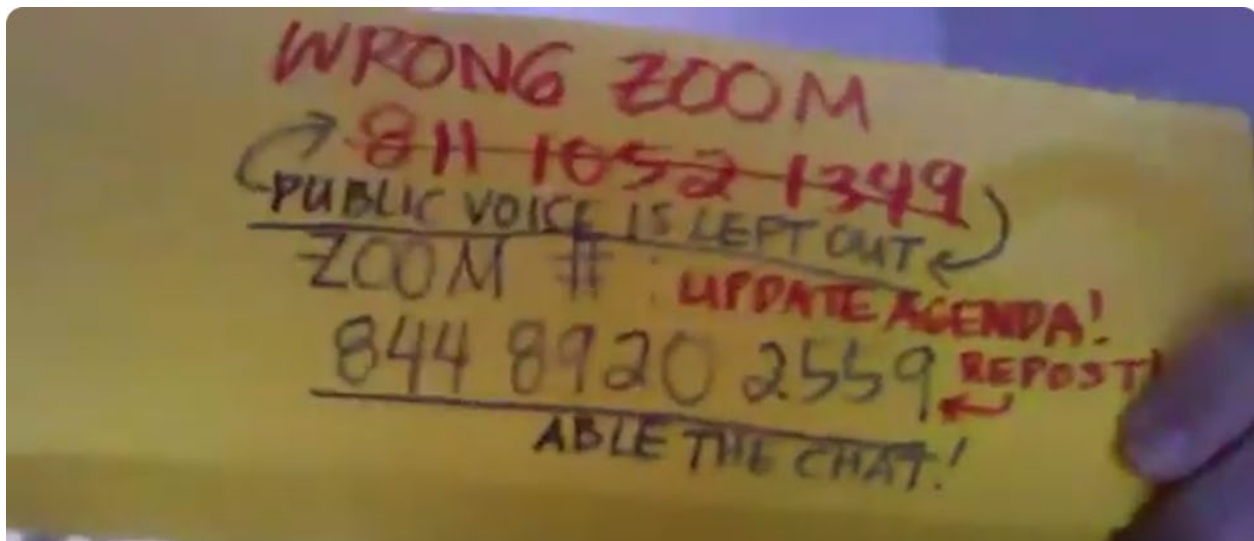 WRONG ZOOM
811 1052 1349
PUBLIC VOICE IS LEFT OUT
ZOOM # :
UPDATE AGENDA!
844 8920 2559
REPOST!
ABLE THE CHAT!